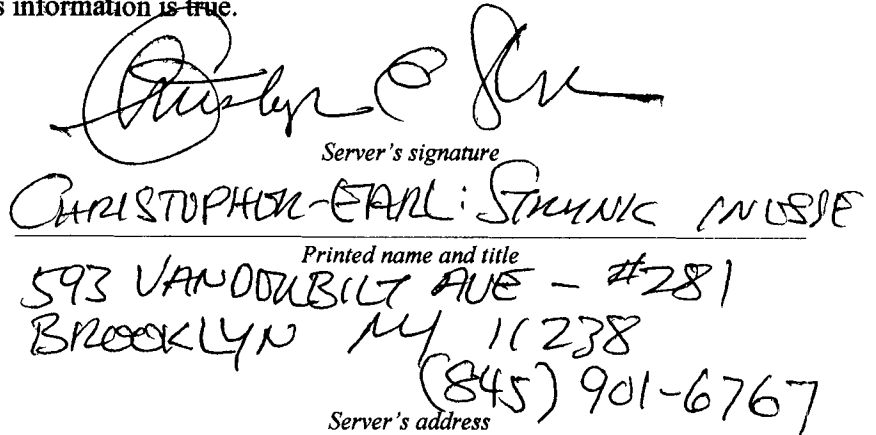 s information is true.
Christopher E Strunk
Server's signature
CHRISTOPHER-EARL: STRUNK IN ESSE
Printed name and title
593 VANDERBILT AVE - #281
BROOKLYN NY 11238
(845) 901-6767
Server's address